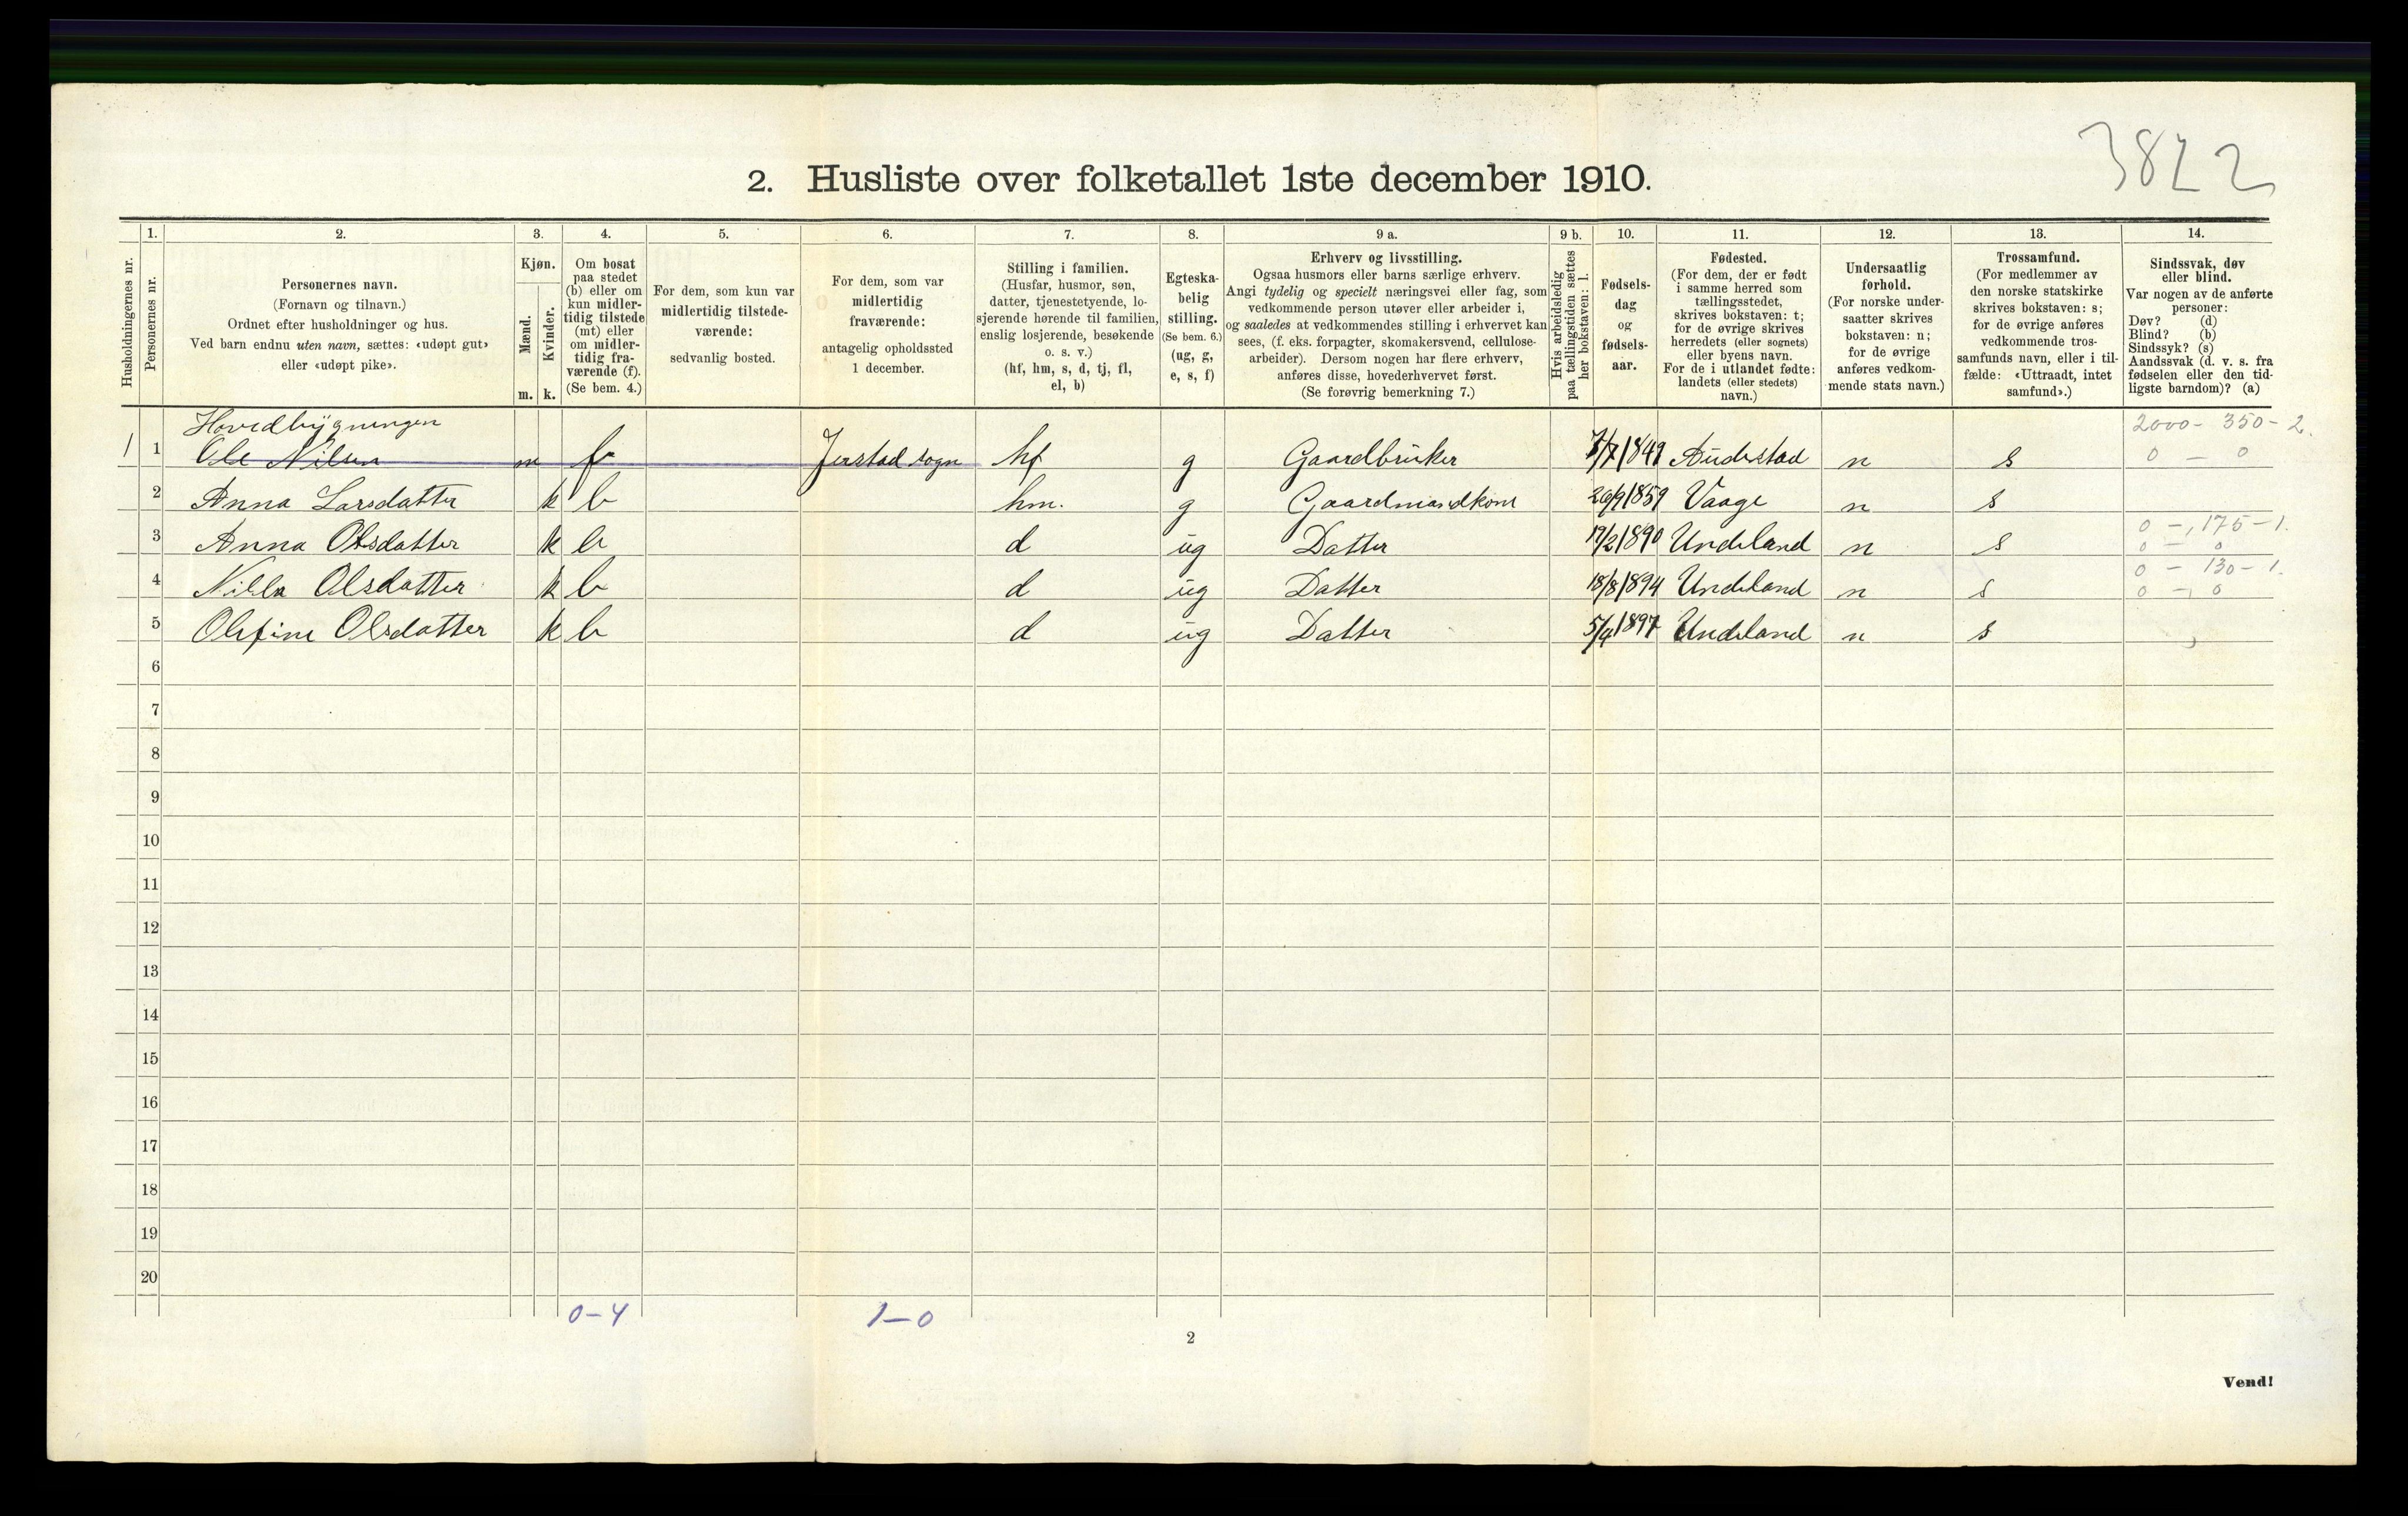 3822
2. Husliste over folketallet 1ste december 1910.
Husholdningernes nr.
1. 2. 3. 4. 5. 6. 7. 8. 9 a. 9 b. 10. 11. 12. 13. 14.
Personernes nr.
Personernes navn.
(Fornavn og tilnavn.)
Ordnet efter husholdninger og hus.
Ved barn endnu uten navn, sættes: «udøpt gut»
eller «udøpt pike».
Kjøn.
Mænd.
Kvinder.
m. k.
Om bosat
paa stedet
(b) eller om
kun midler-
tidig tilstede
(mt) eller
om midler-
tidig fra-
værende (f).
(Se bem. 4.)
For dem, som kun var
midlertidig tilstede-
værende:
sedvanlig bosted.
For dem, som var
midlertidig
fraværende:
antagelig opholdssted
1 december.
Stilling i familien.
(Husfar, husmor, søn,
datter, tjenestetyende, lo-
sjerende hørende til familien,
enslig losjerende, besøkende
o. s. v.)
(hf, hm, s, d, tj, fl,
el, b)
Egteska-
belig
stilling.
(Se bem. 6.)
(ug, g,
e, s, f)
Erhverv og livsstilling.
Ogsaa husmors eller barns særlige erhverv.
Angi tydelig og specielt næringsvei eller fag, som
vedkommende person utøver eller arbeider i,
og saaledes at vedkommendes stilling i erhvervet kan
sees, (f. eks. forpagter, skomakersvend, cellulose-
arbeider). Dersom nogen har flere erhverv,
anføres disse, hovederhvervet først.
(Se forøvrig bemerkning 7.)
Hvis arbeidsledig
paa tællingstiden sættes
her bokstaven: l.
Fødsels-
dag
og
fødsels-
aar.
Fødested.
(For dem, der er født
i samme herred som
tællingsstedet,
skrives bokstaven: t;
for de øvrige skrives
herredets (eller sognets)
eller byens navn.
For de i utlandet fødte:
landets (eller stedets)
navn.)
Undersaatlig
forhold.
(For norske under-
saatter skrives
bokstaven: n;
for de øvrige
anføres vedkom-
mende stats navn.)
Trossamfund.
(For medlemmer av
den norske statskirke
skrives bokstaven: s;
for de øvrige anføres
vedkommende tros-
samfunds navn, eller i til-
fælde: «Uttraadt, intet
samfund».)
Sindssvak, døv
eller blind.
Var nogen av de anførte
personer:
Døv? (d)
Blind? (b)
Sindssyk? (s)
Aandssvak (d. v. s. fra
fødselen eller den tid-
ligste barndom)? (a)
Hovedbygningen 2000 - 350 - 2.
1 1 Ole Nilsen m f Jerstad sogn hf g Gaardbruker 1849 Audestad n s 0 - 0
2 Anna Larsdatter k b hm. g Gaardmandkone 26/9 1859 Vaage n s
0 - 175 - 1.
3 Anna Olsdatter k b d ug Datter 19/2 1890 Undeland n s 0 - 0
0 - 130 - 1.
4 Nilla Olsdatter k b d ug Datter 18/8 1894 Undeland n s 0 - 0
5 Olefine Olsdatter k b d ug Datter 5/4 1897 Undeland n s
6
7
8
9
10
11
12
13
14
15
16
17
18
19
20
0-4 1-0
2
Vend!